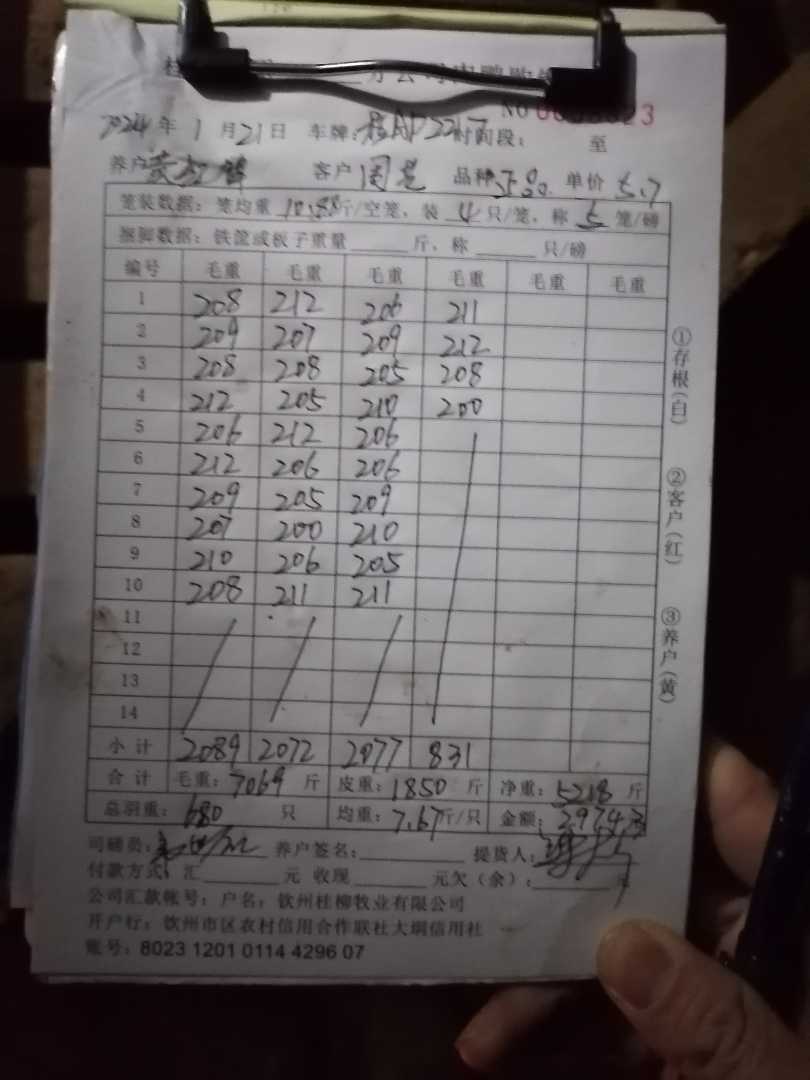 分公司肉鸭购销
NO 0008023
2024年 1月21日 车牌: 时间段: 至
养户 客户 周 品种 正品 单价 5.7
笼装数据: 笼均重 10.88斤/空笼, 装 4 只/笼, 称 5 笼/磅
捆脚数据: 铁筐或板子重量 斤, 称 只/磅
编号 毛重 毛重 毛重 毛重 毛重 毛重
1 208 212 206 211
2 209 207 209 212
3 208 208 205 208
4 212 205 210 200
5 206 212 206
6 212 206 206
7 209 205 209
8 207 200 210
9 210 206 205
10 208 211 211
11
12
13
14
小计 2089 2072 2077 831
合计 毛重: 7069 斤 皮重: 1850 斤 净重: 5218 斤
总羽重: 680 只 均重: 7.67斤/只 金额: 29743
司磅员: 养户签名: 提货人:
付款方式: 汇 元 收现 元欠(余): 元
公司汇款帐号: 户名: 钦州桂柳牧业有限公司
开户行: 钦州市区农村信用合作联社大垌信用社
账号: 8023 1201 0114 4296 07
①存根(白)
②客户(红)
③养户(黄)